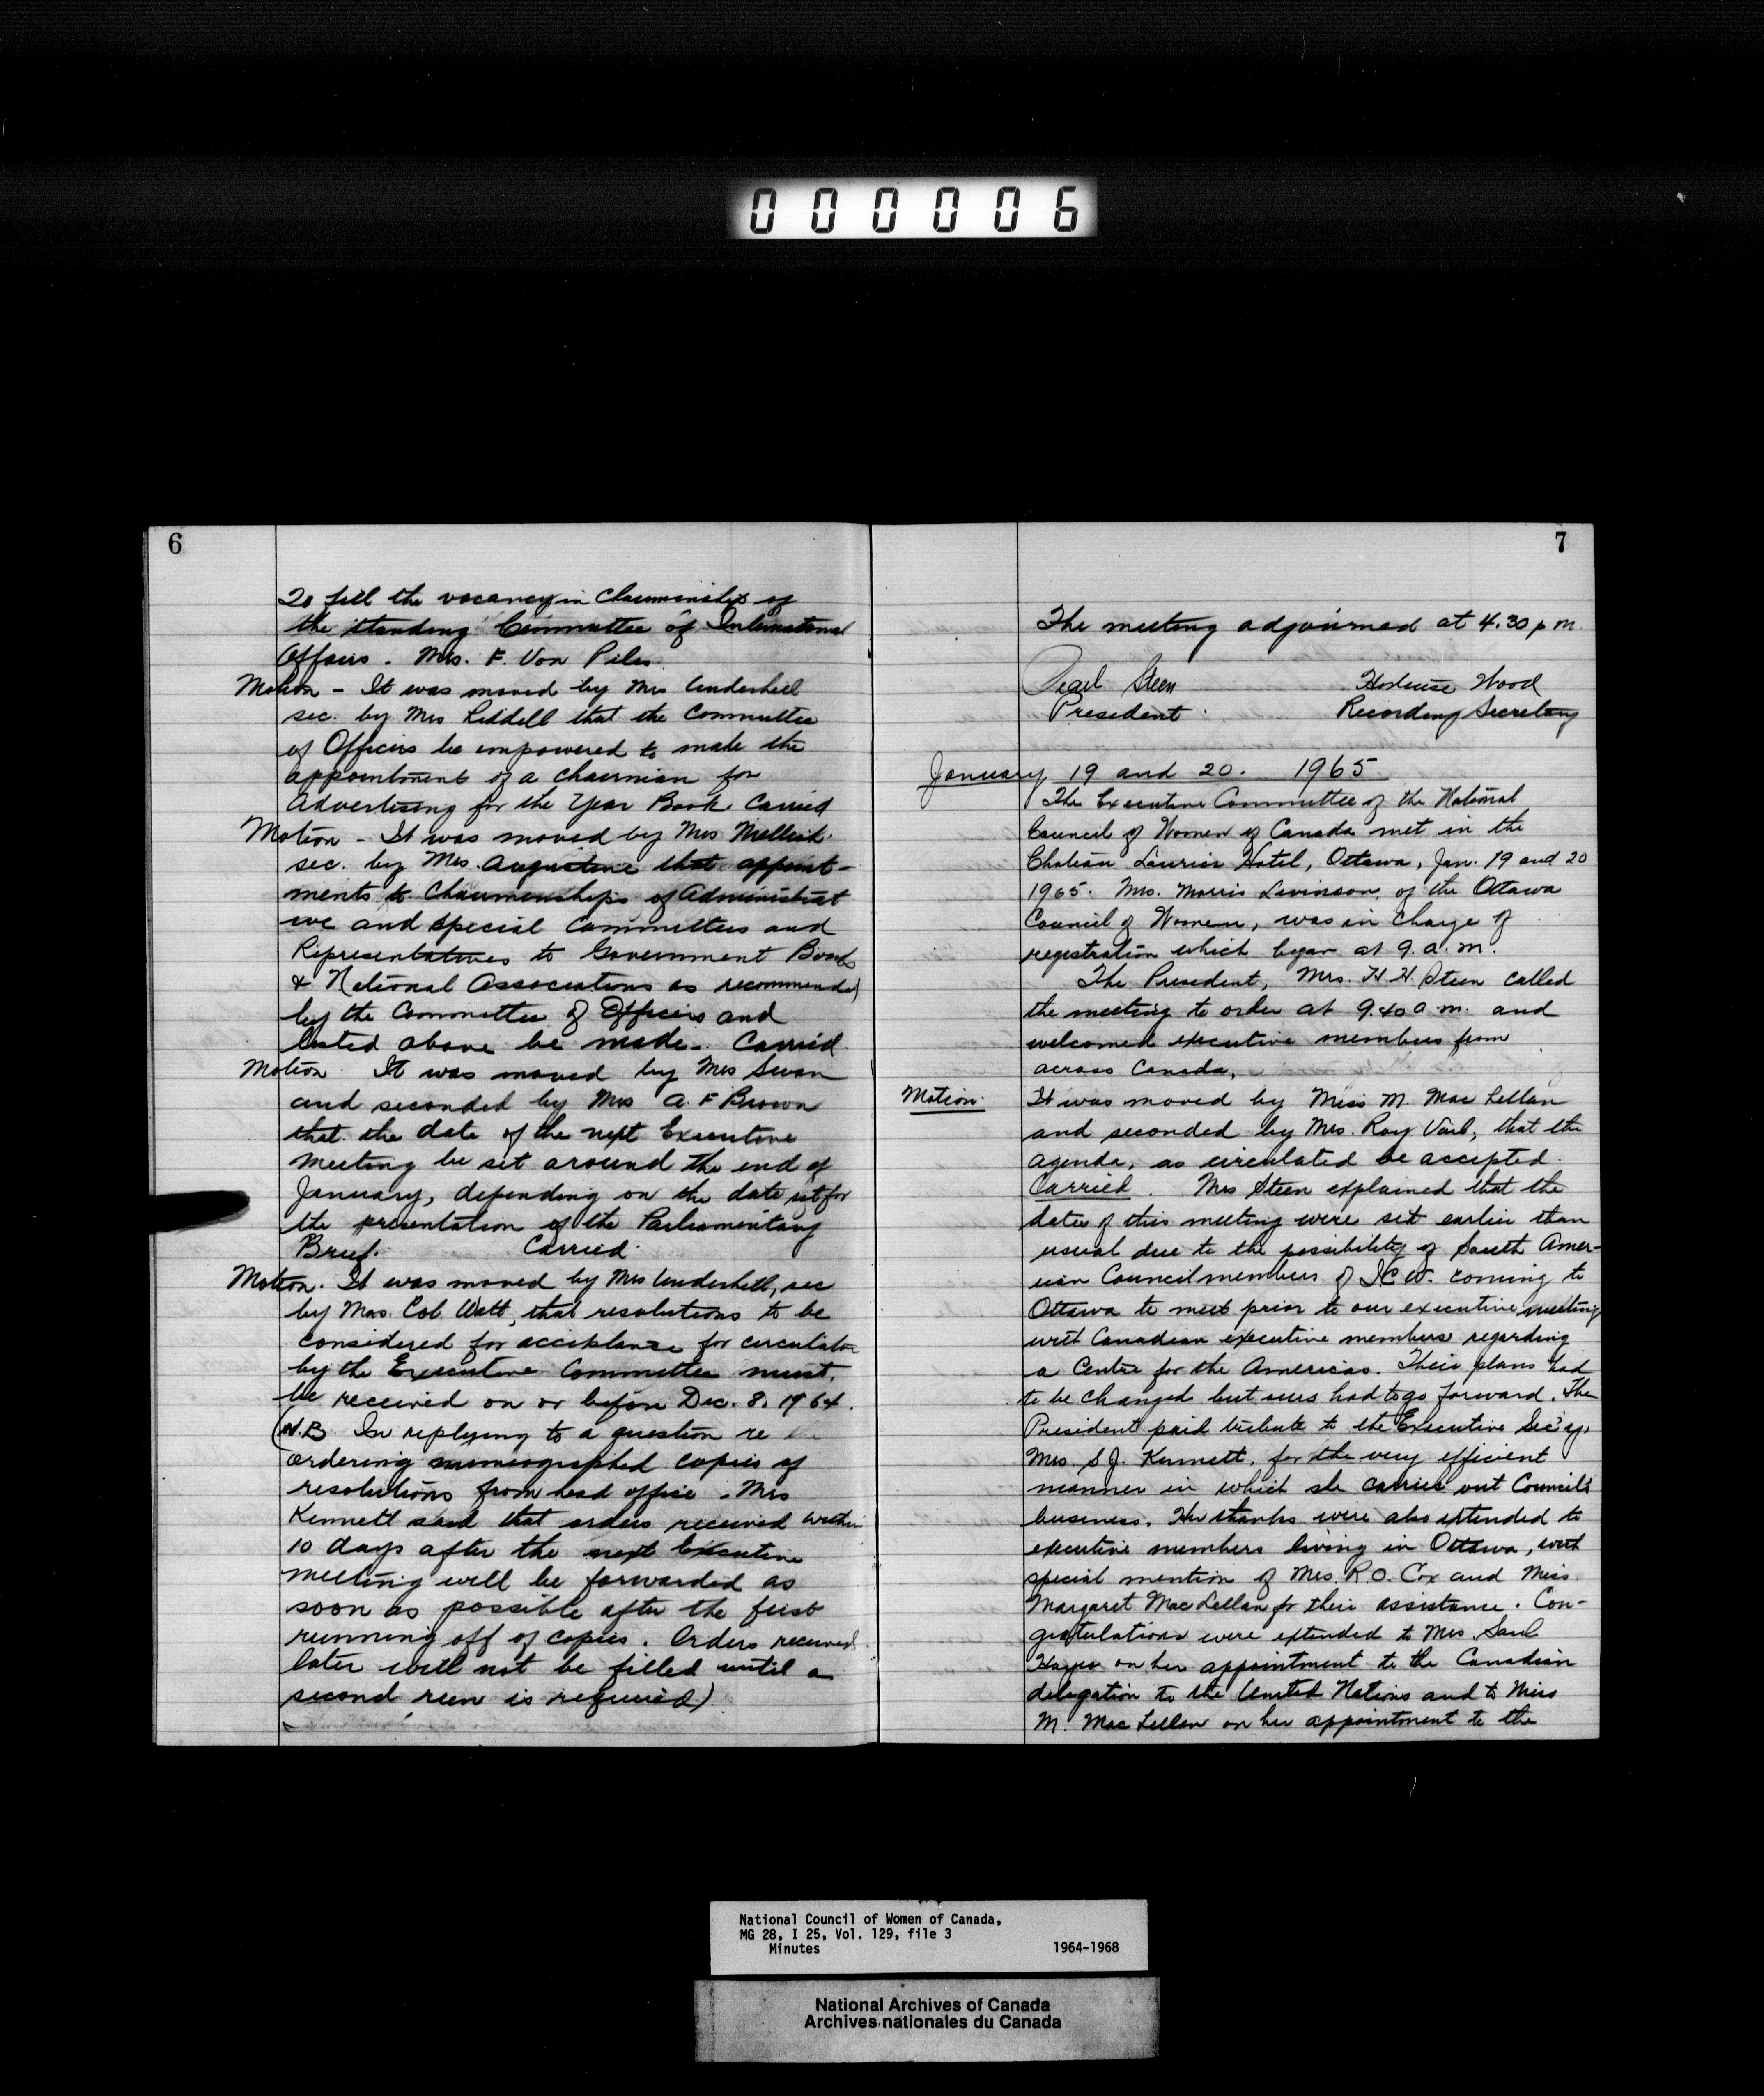 000006
6
To fill the vacancy in Chairmanship of
the standing Committee of International
Affairs. Mrs. F. Von Piles.
Motion - It was moved by Mrs Underhill
sec. by Mrs Liddell that the Committee
of Officers be empowered to make the
appointment of a chairman for
Advertising for the Year Book. Carried
Motion - It was moved by Mrs Mellish.
sec. by Mrs. Augustine that appoint-
ments to Chairmanships of Administrat
ive and special Committees and
Representatives to Government Boards
& National Associations as recommended
by the Committee of Officers and
listed above be made. Carried.
Motion. It was moved by Mrs Swan
and seconded by Mrs A. F Brown
that the date of the next Executive
meeting be set around the end of
January, depending on the date set for
the presentation of the Parliamentary
Brief. Carried.
Motion. It was moved by Mrs Underhill, sec
by Mrs. Col. Watt, that resolutions to be
considered for acceptance for circulation
by the Executive Committee must,
be received on or before Dec. 8. 1964.
(N.B. In replying to a question re the
ordering mimeographed copies of
resolutions from head office. Mrs
Kennett said that orders received within
10 days after the next Executive
meeting will be forwarded as
soon as possible after the first
running off of copies. Orders received
later will not be filled until a
second run is required)
7
The meeting adjourned at 4.30 p m.
Pearl Steen Hortense Wood
President. Recording Secretary
January 19 and 20. 1965
The Executive Committee of the National
Council of Women of Canada met in the
Chateau Laurier Hotel, Ottawa, Jan. 19 and 20
1965. Mrs. Morris Levinson, of the Ottawa
Council of Women, was in charge of
registration which began at 9. a. m.
The President, Mrs. H. H. Steen called
the meeting to order at 9.40 a m. and
welcomed executive members from
across Canada.
Motion. It was moved by Miss M. Mac Lellan
and seconded by Mrs. Roy Vail, that the
agenda, as circulated be accepted.
Carried. Mrs Steen explained that the
dates of this meeting were set earlier than
usual due to the possibility of South Amer-
ican Council members of I.C.W. coming to
Ottawa to meet prior to our executive meeting
with Canadian executive members regarding
a Centre for the Americas. Their plans had
to be changed but ours had to go forward. The
President paid tribute to the Executive Sec'y.
Mrs. S J. Kennett, for the very efficient
manner in which she carries out Council's
business. Her thanks were also extended to
executive members living in Ottawa, with
special mention of Mrs. R. O. Cox and Miss.
Margaret Mac Lellan for their assistance. Con-
gratulations were extended to Mrs. Saul
Hayes on her appointment to the Canadian
delegation to the United Nations and to Miss
M. Mac Lellan on her appointment to the
National Council of Women of Canada,
MG 28, I 25, Vol. 129, file 3
Minutes 1964-1968
National Archives of Canada
Archives nationales du Canada